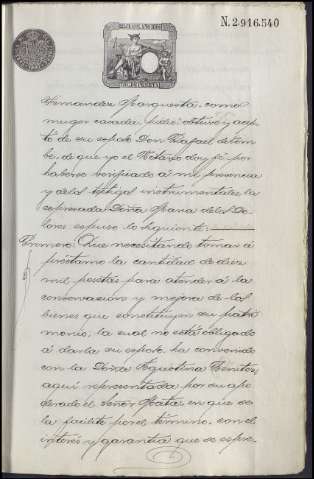 N. 2.916.540
Hernandez Marquesta, como
muger casada pidió obtuvo y acep-
to de su esposo Don Rafael
de que yo el Notario doy fe por
haberse verificado á mi presencia
y de los testigos instrumentales la
espresada Doña Maria de los Do-
lores espuso lo siguiente:
Primero: Que necesitando tomar á
préstamo la cantidad de diez
mil pesetas para atender á la
conservacion y mejora de los
bienes que constituyen su patri-
monio, la cual no está obligado
á darla su esposo, ha convenido
con la Doña Agustina Benitez,
aquí representada por su apo-
derado el Señor Mata, en que se
la facilite por el término, con el
interés y garantia que se espre-